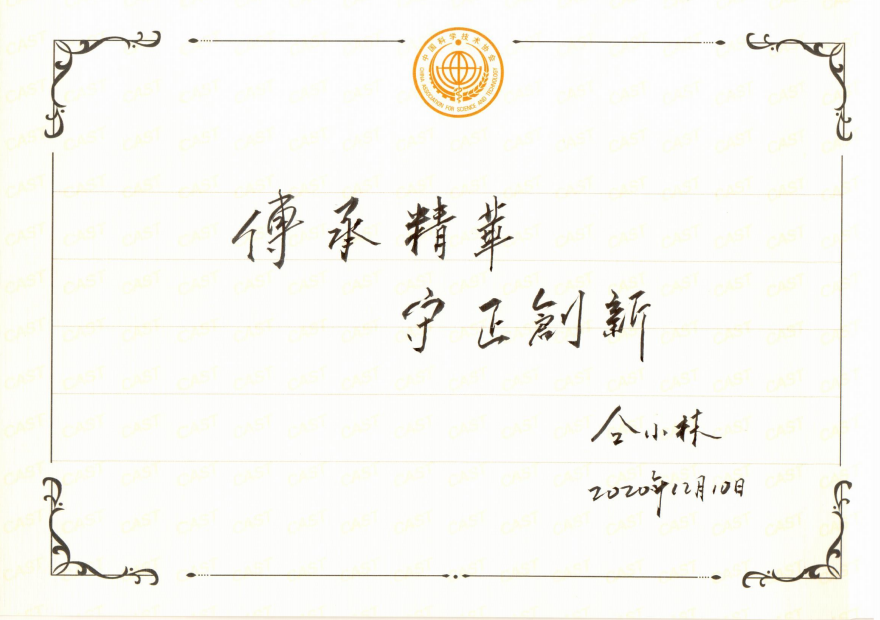 中国科学技术协会
CHINA ASSOCIATION FOR SCIENCE AND TECHNOLOGY
傳承精華
守正創新
仝小林
2020年12月10日